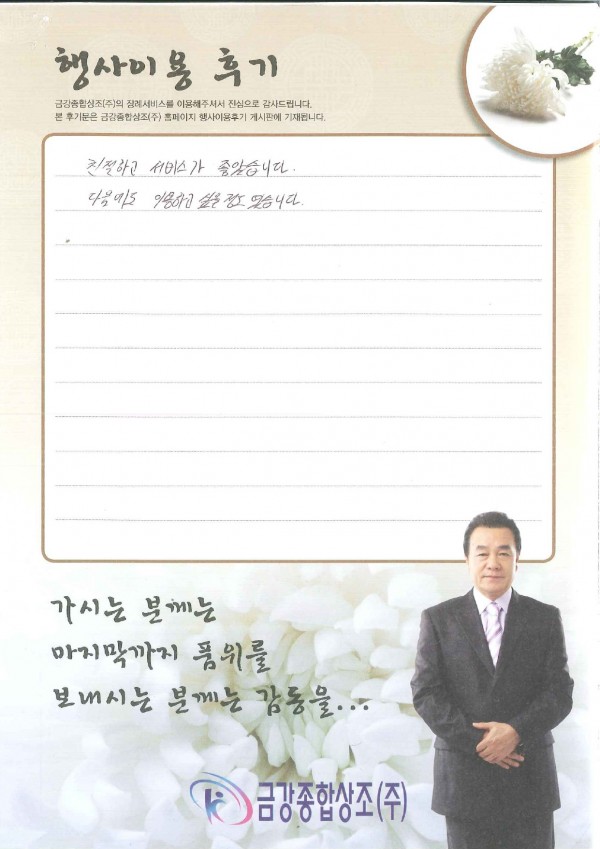 행사이용 후기
금강종합상조(주)의 장례서비스를 이용해주셔서 진심으로 감사드립니다.
본 후기문은 금강종합상조(주) 홈페이지 행사이용후기 게시판에 기재됩니다.
친절하고 서비스가 좋았습니다.
다음에도 이용하고 싶을 정도 였습니다.
가시는 분께는
마지막까지 품위를
보내시는 분께는 감동을...
금강종합상조(주)